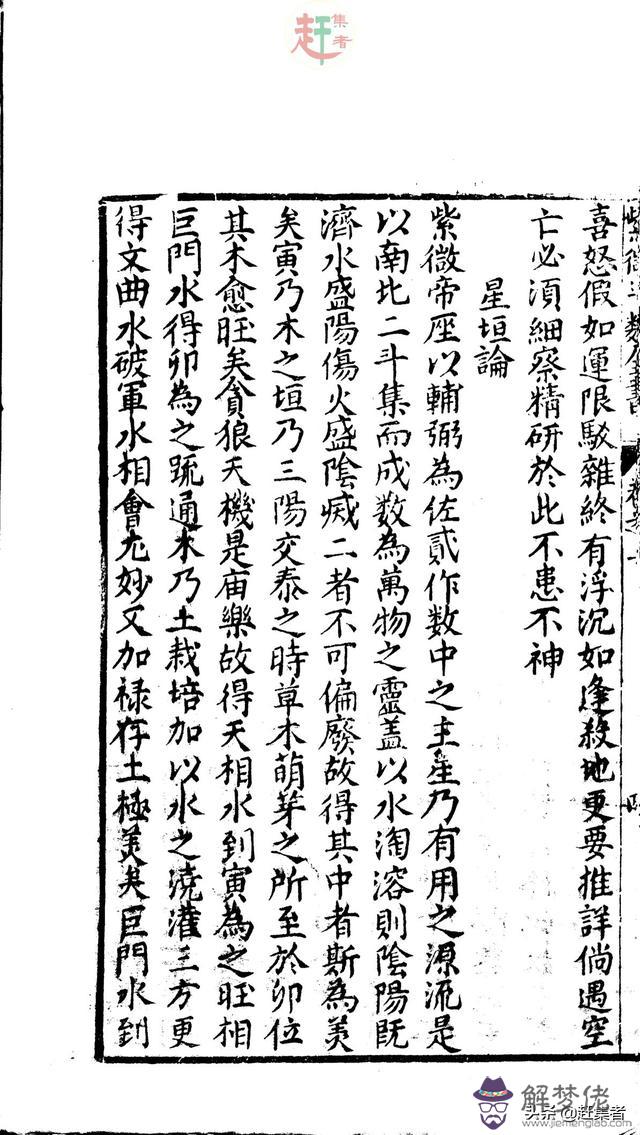 赶集者
紫微斗數全書
喜怒假如運限駁雜終有浮沉如逢殺地更要推詳倘遇空
亡必須細察精研於此不患不神
星垣論
紫微帝座以輔弼為佐貳作数中之主星乃有用之源流是
以南北二斗集而成数為萬物之靈盖以水淘溶則陰陽既
濟水盛陽傷火盛陰滅二者不可偏廢故得其中者斯為美
矣寅乃木之垣乃三陽交泰之時草木萌芽之所至於卯位
其木愈旺矣貪狼天機是庙樂故得天相水到寅為之旺相
巨門水得卯為之疏通木乃土栽培加以水之澆灌三方更
得文曲水破軍水相會尤妙又加禄存土極美矣巨門水到
解梦佬
头条@赶集者
www.jiemenglao.com